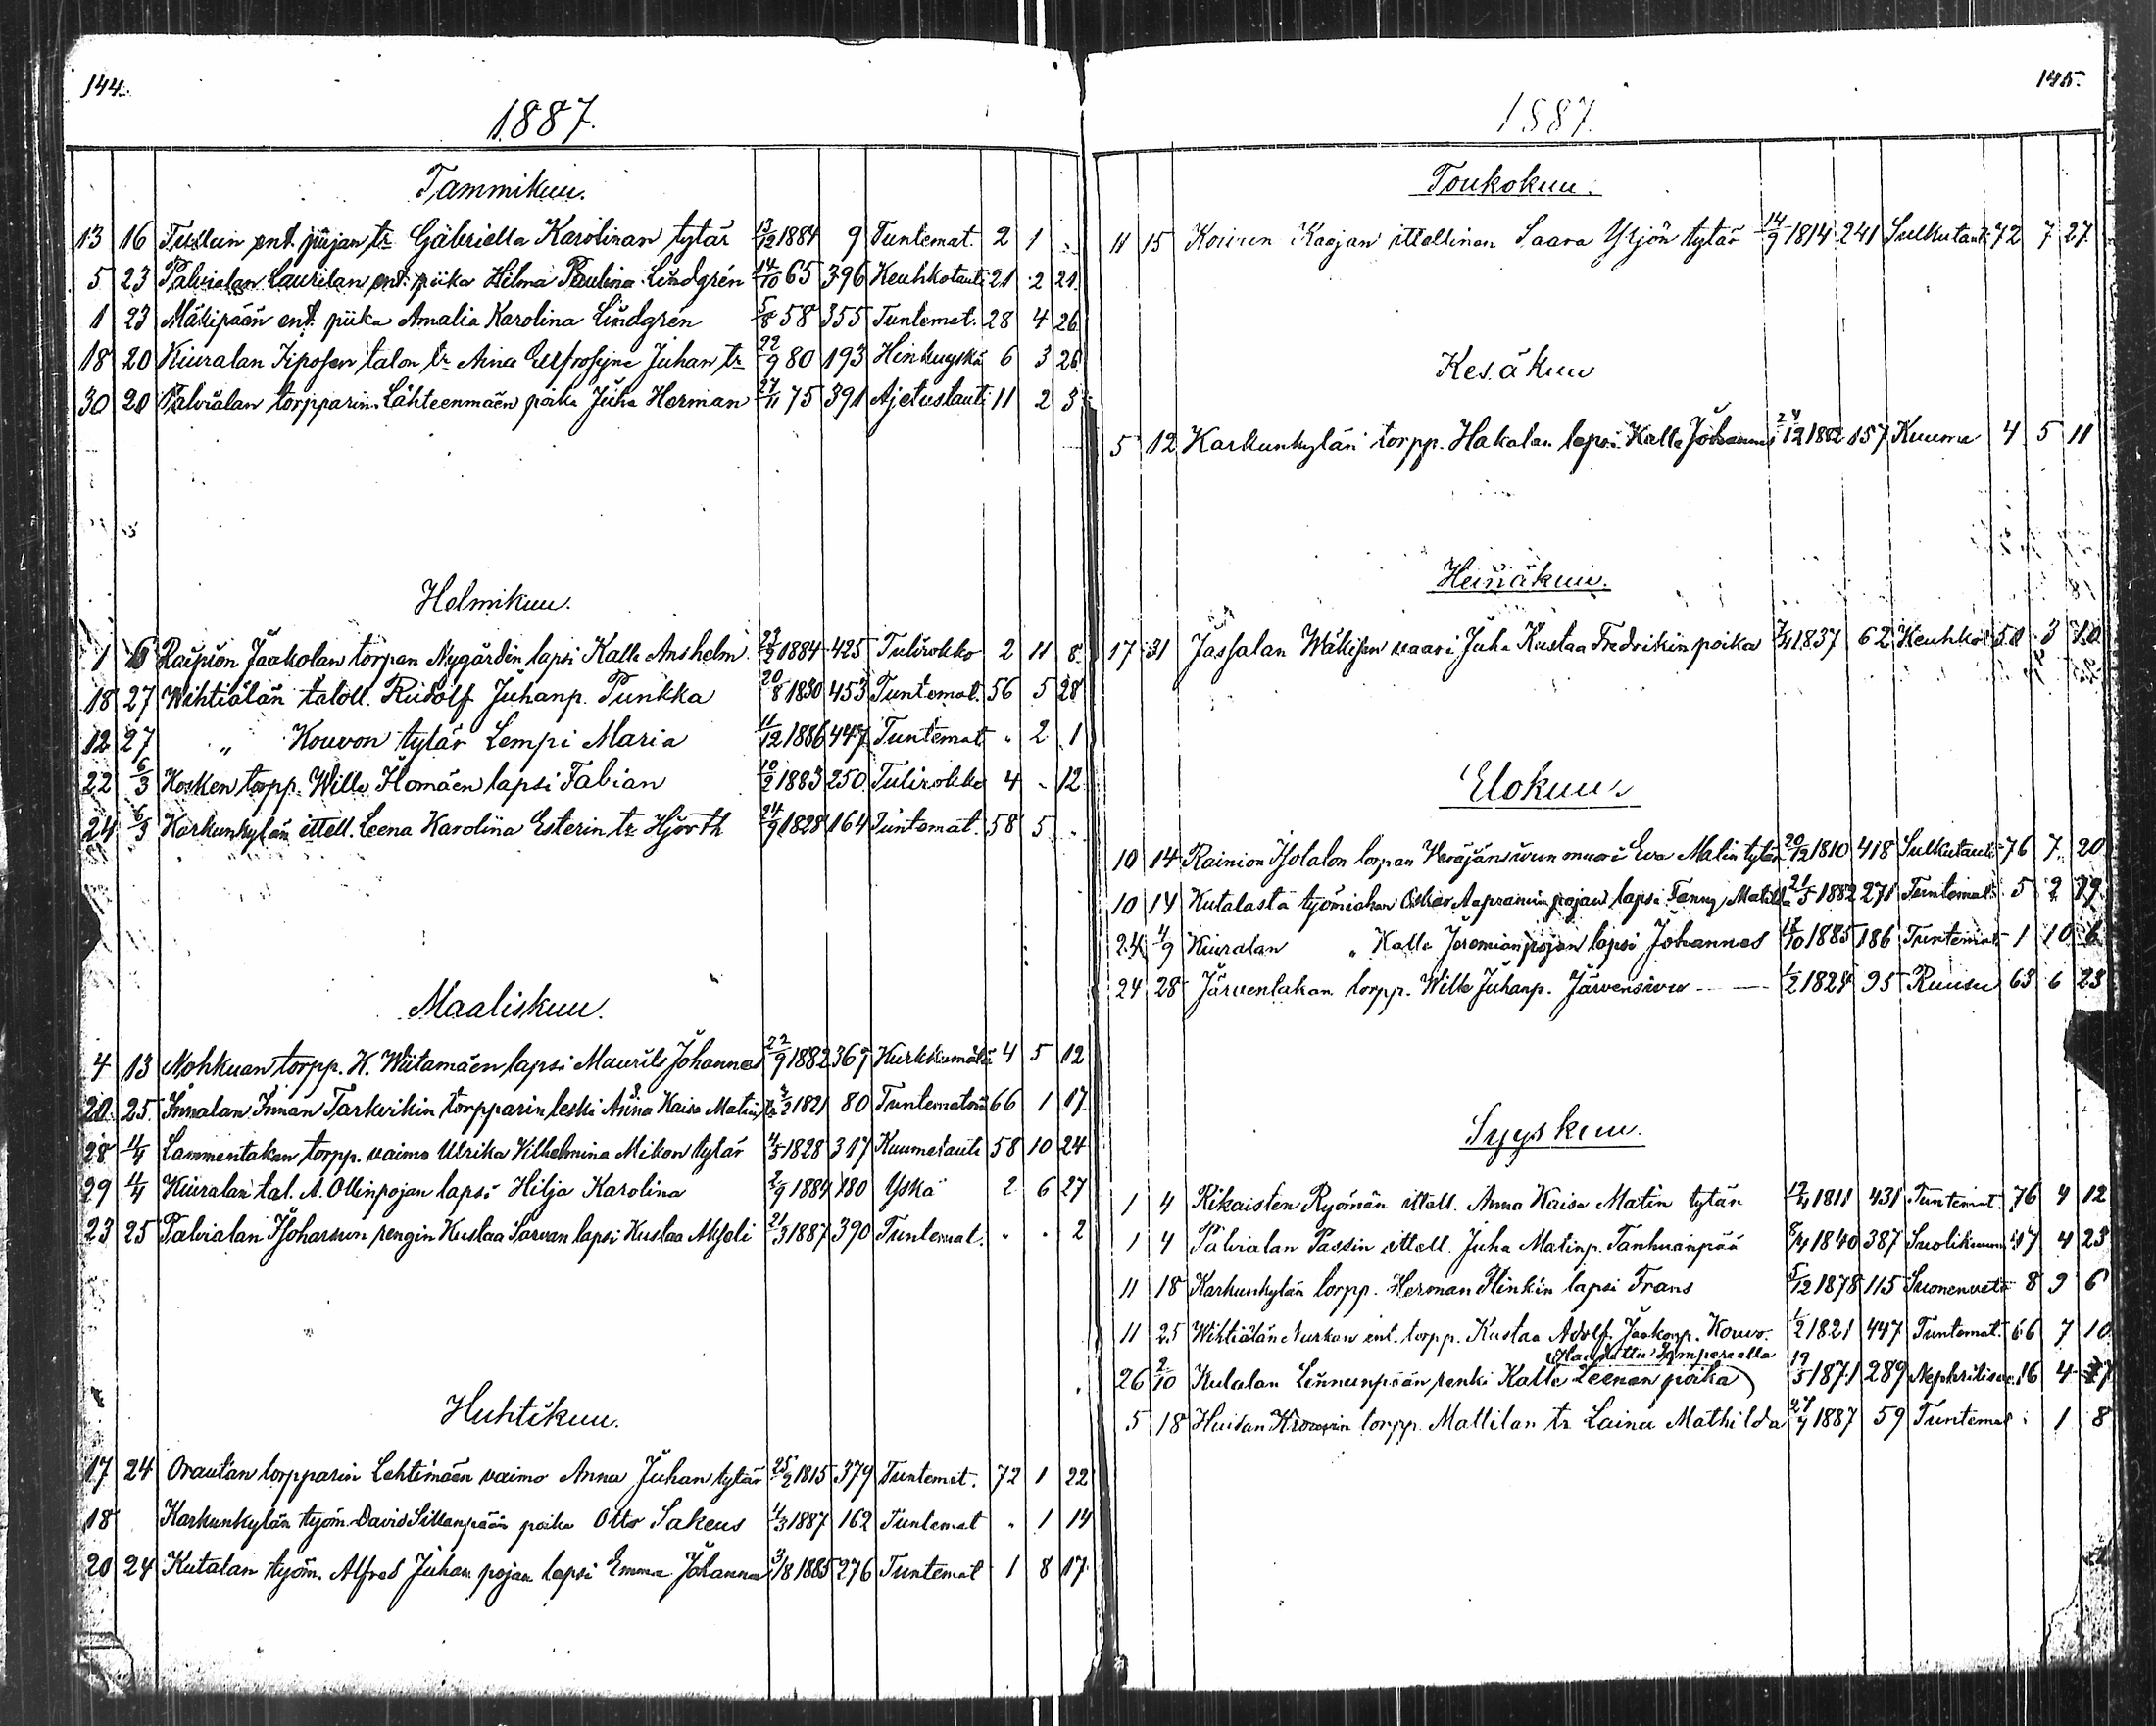 144.
1887.
Tammikuu.
13 16 ent. piijan tr Gabriella Karolinan tytär 13/12 1884 9 Tuntemat. 2 1 „
5 23 Palvialan Laurilan ent. piika Hilma Paulina Lindgrén 14/10 65 396 Keuhkotauti 21 2 21.
1 23 Mäkipään ent. piika Amalia Karolina Lindgrén 5/8 58 355 Tuntemat. 28 4 26
18 20 Kiuralan talon tr Aina Eufrosyne Juhan tr 22/9 80 193 Hinkuyskä 6 3 26
30 20 Palviälan torpparin Lähteenmäen poika Juha Herman 27/11 75 391 Ajetustauti 11 2 3
Helmikuu.
1 6 Raipion Jaakolan torpan Nygårdin lapsi Kalle Anshelm 1884 425 Tulirokko 2 11 8.
18 27 Wihtiälän taloll. Rudolf Juhanp. Punkka 20/8 1830 453 Tuntemat. 56 5 28
12 27 „ Kouvon tytär Lempi Maria 11/12 1886 447 Tuntemat „ 2 1
22 6/3 Kosken torpp. Wille Ilomäen lapsi Fabian 10/2 1883 250 Tulirokko 4 „ 12
24 6/3 Karhunkylän ittell. Leena Karoliina Esterin tr Hjorth 24/9 1828 164 Tuntemat. 58 5 „
Maaliskuu.
4 13 Nohkuan torpp. K. Wiitamäen lapsi Maurits Johannes 22/9 1882 369 4 5 12
20 25. Innalan Innan Tarkvikin torpparin leski Anna Kaisa Matin tr 3/3 1821 80 66 1 17.
28 4/4 Lammentakan torpp. vaimo Ulrika Vilhelmina Mikon tytär 4/5 1828 317 Kuumetauti 58 10 24
29 4/4 Kiuralan tal. A. Ollinpojan lapsi Hilja Karolina 2/9 1884 180 Yskä 2 6 27
23 25 Palvialan rengin Kustaa Sarvan lapsi Kustaa Akseli 21/3 1887 390 Tuntemat. „ „ 2
Huhtikuu.
17 24 Orautan torpparin Lehtimäen vaimo Anna Juhan tytär 25/2 1815 379 Tuntemat. 72 1 22
18 Karhunkylän työm. David Sillanpään poika Otto Sakeus 4/3 1887 162 Tuntemat „ 1 14
20 24 Kutalan työm. Alfred Juhan pojan lapsi Emma Johanna 3/8 1885 276 Tuntemat 1 8 17.
145.
1887.
Toukokuu.
11 15 Kaajan ittellinen Saara Yrjön tytär 14/9 1814 241 Sulkutauti 72 7 27
Kesäkuu
5 12 Karhunkylän torpp. Hakalan lapsi Kalle Johannes 24/12 1882 157 Kuume 4 5 11
Heinäkuu.
17 31 Jassalan vaari Juha Kustaa Fredrikin poika 7/4 1837 62 Keuhkot 50 3 10
Elokuu
10 14 Rainion Isotalon torpan muori Eva Matin tytär 20/12 1810 418 Sulkutauti 76 7 20
10 14 Kutalasta työmiehen Oskar Aapramin pojan lapsi Fanny Matilda 21/5 1882 271 Tuntemat. 5 2 19
24 4/9 Kiuralan „ Kalle Jeremianpojan lapsi Johannes 18/10 1885 186 Tuntemat 1 10 6
24 28 Järventakan torpp. Wille Juhanp. Järvensivu 1/2 1824 95 Ruusu 63 6 23
Syyskuu.
1 4 Rikaisten Ryömän ittell. Anna Kaisa Matin tytär 17/4 1811 431 Tuntemat. 76 4 12
1 4 Palvialan Passin ittell. Juha Matinp. Tanhuanpää 8/4 1840 387 47 4 23
11 18 Karhunkylän torpp. Herman Hinkin lapsi Frans 5/12 1878 115 Suonenveto 8 9 6
11 25 Wihtiälän ent. torpp. Kustaa Adolf Jaakonp. Kouvo. 1/2 1821 447 Tuntemat. 66 7 10
Haudattu Tampereella
26 2/10 Kutalan Linnunpään renki Kalle Leenan poika) 19/5 1871 289 16 4 7
5 18 Huidan torpp. Mattilan tr Laina Mathilda 1887 59 Tuntemat „ 1 8